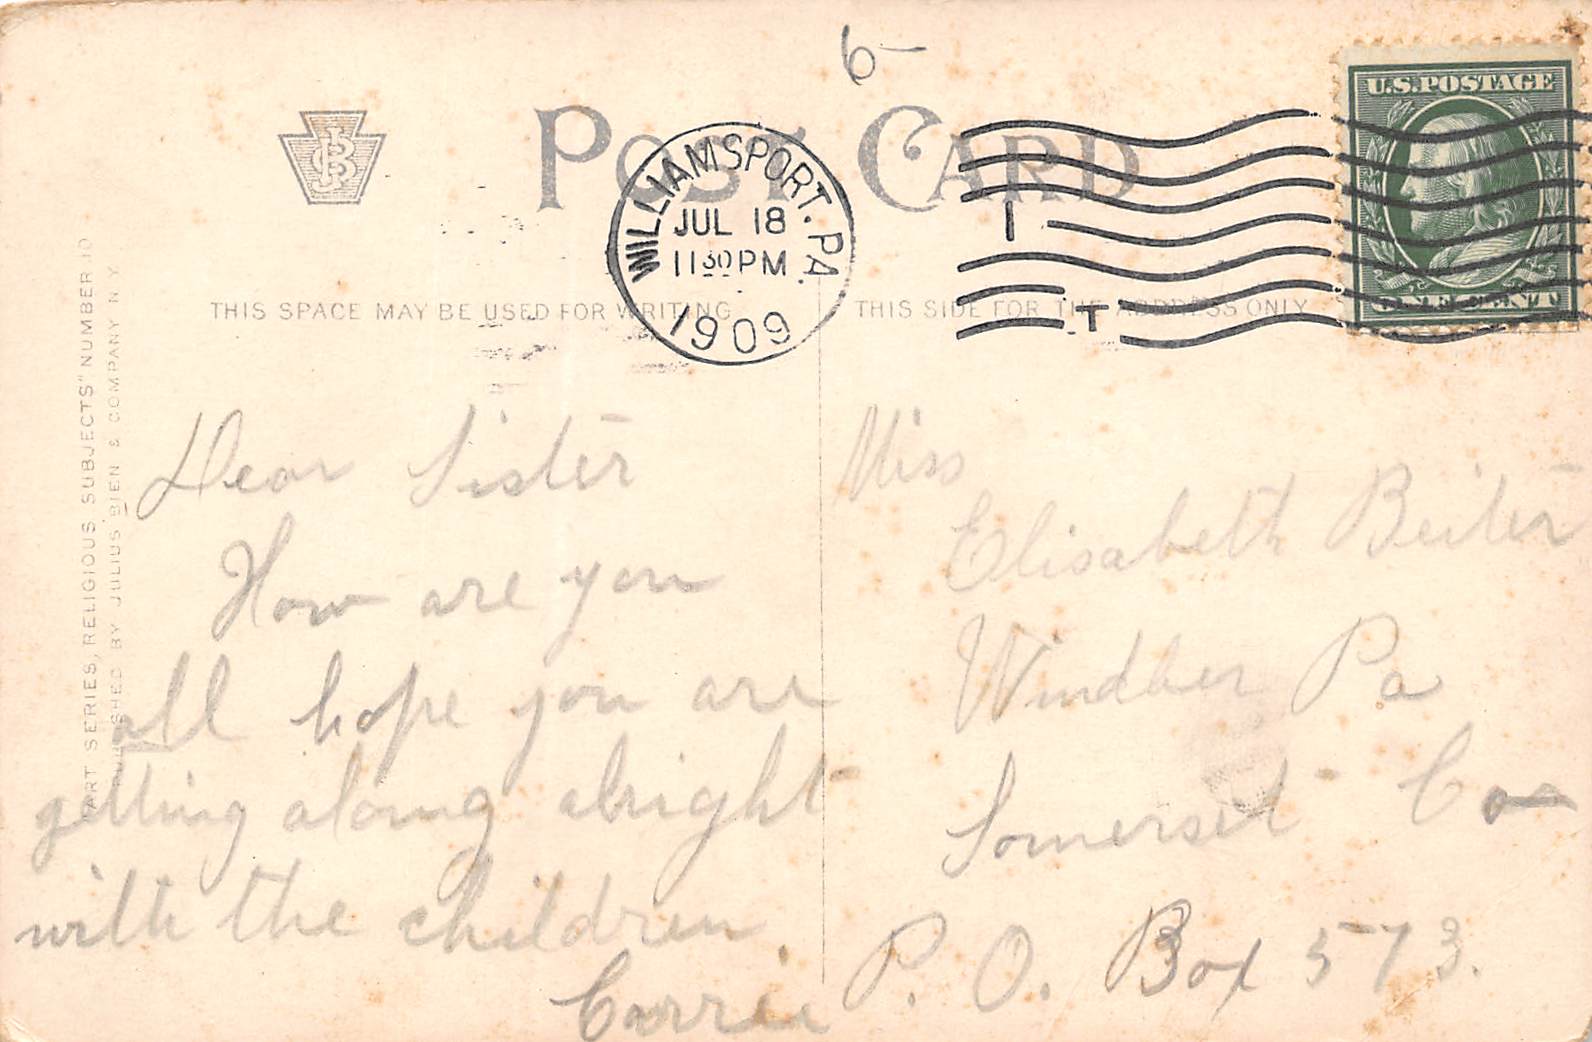 6-
POST CARD
U.S. POSTAGE
WILLIAMSPORT, PA.
JUL 18
11 30 PM
1909
I
T
THIS SPACE MAY BE USED FOR WRITING
THIS SIDE FOR THE ADDRESS ONLY
ART SERIES, RELIGIOUS SUBJECTS" NUMBER 10
PUBLISHED BY JULIUS BIEN & COMPANY N.Y.
Dear Sister
How are you
all hope you are
getting along alright
with the children.
Carrie
Miss
Elisabeth Beiter
Windber Pa
Somerset Co
P. O. Box 573.